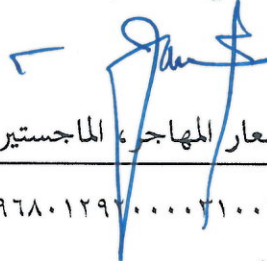 عار المهاجر، الماجستير
٩٦٨٠١٢٩٢٠٠٠٠٣١٠٠